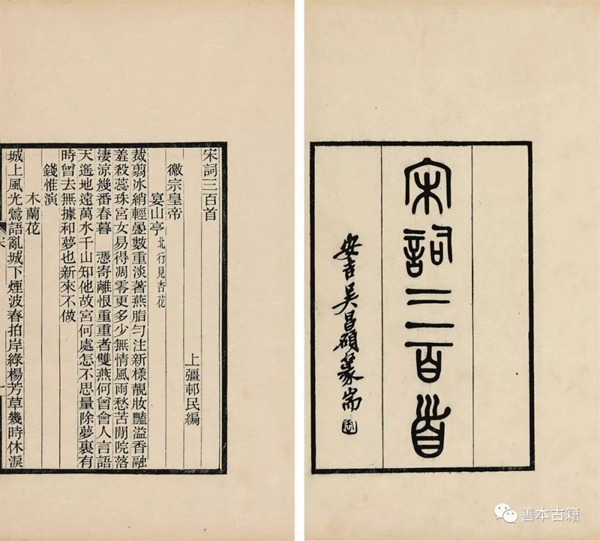 宋詞三百首
安吉吳昌碩篆耑
宋詞三百首
上彊邨民編
徽宗皇帝
宴山亭 北行見杏花
裁翦冰綃輕疊數重淡著燕脂勻注新樣靚妝豔溢香融
羞殺蕊珠宮女易得凋零更多少無情風雨愁苦閒院落
淒涼幾番春暮 憑寄離恨重重者雙燕何曾會人言語
天遙地遠萬水千山知他故宮何處怎不思量除夢裏有
時曾去無據和夢也新來不做
錢惟演
木蘭花
城上風光鶯語亂城下煙波春拍岸綠楊芳草幾時休淚
善本古籍